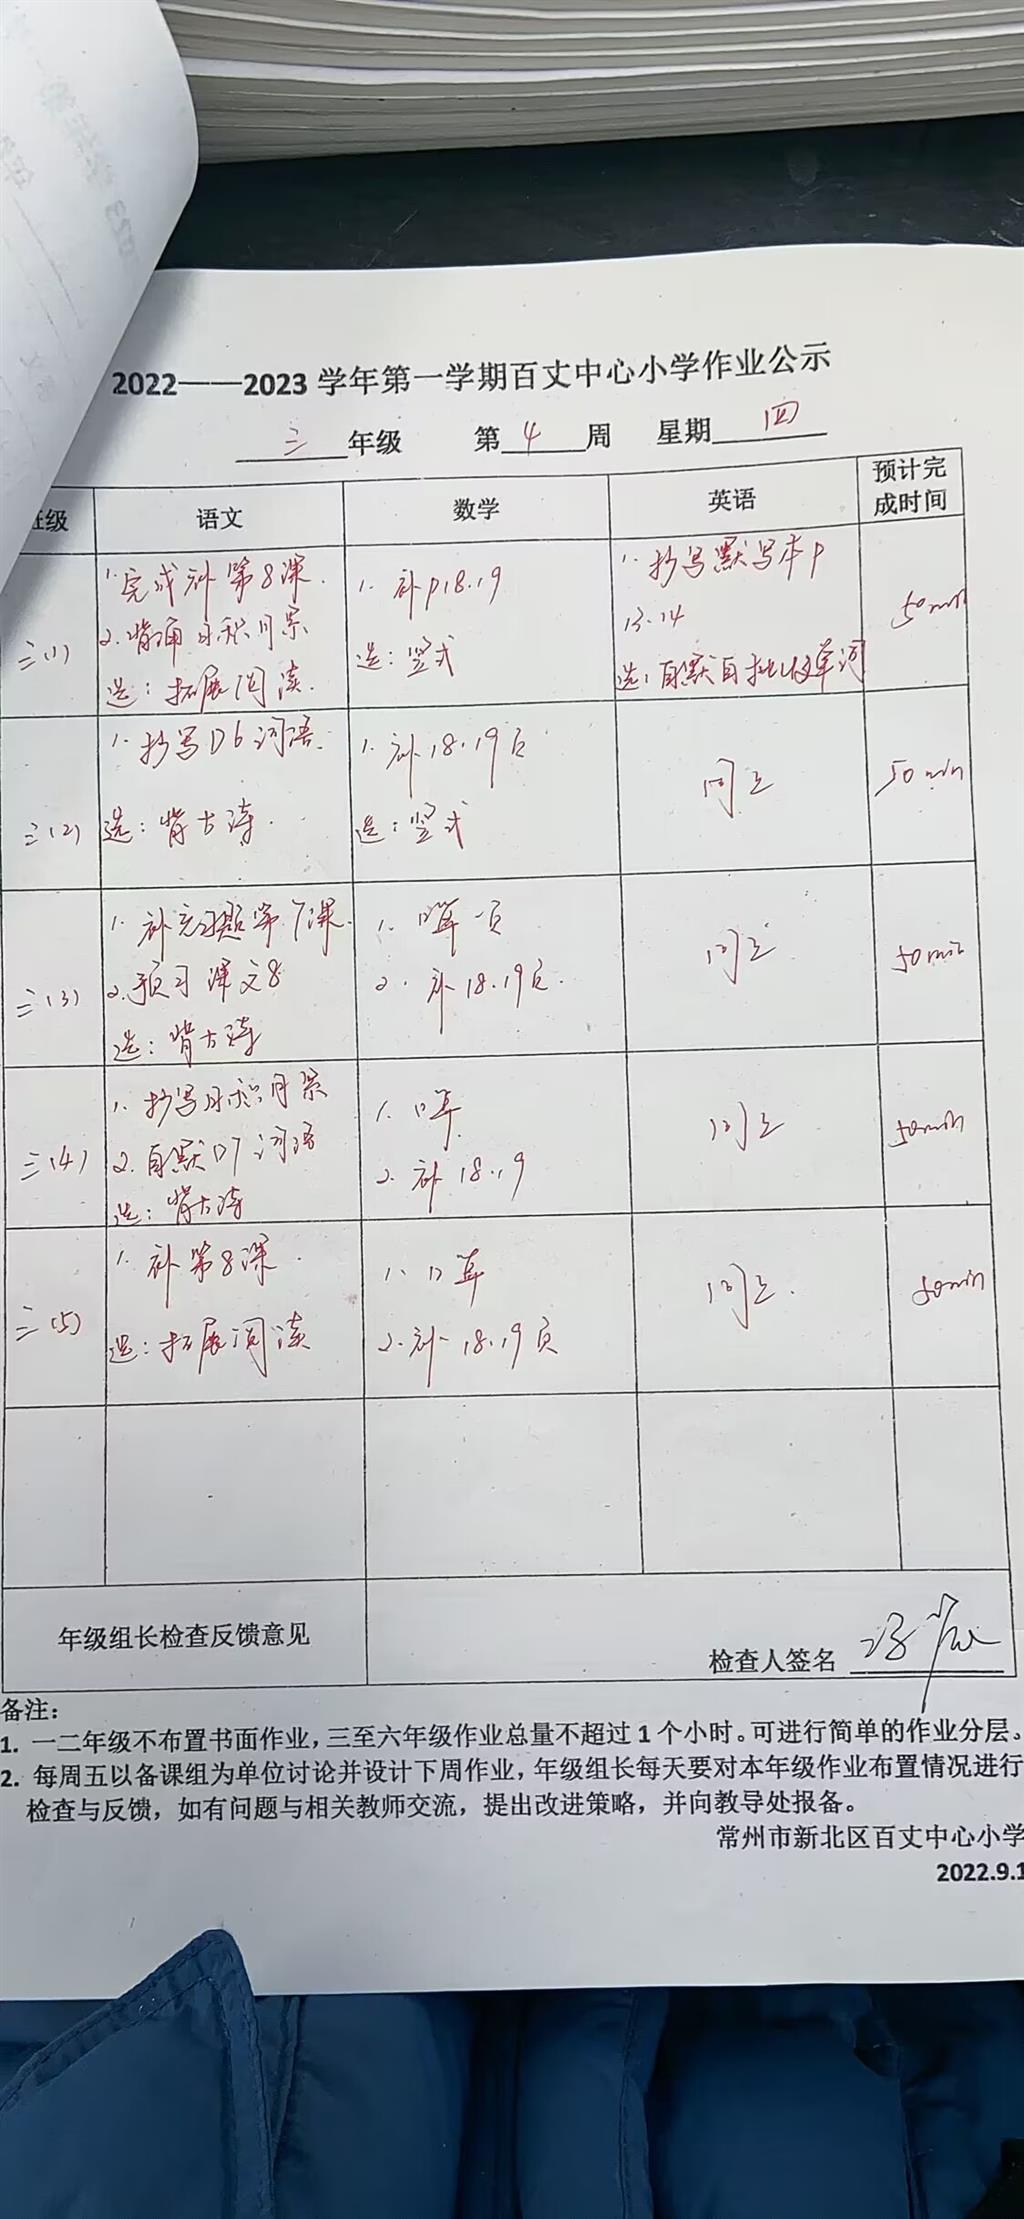 2022——2023 学年第一学期百丈中心小学作业公示
三 年级 第 4 周 星期 四
班级 语文 数学 英语 预计完成时间
三(1)
1. 完成补第8课.
2. 背诵日积月累
选: 拓展阅读.
1. 补P18.19
选: 竖式
1. 抄写默写本P
13.14
选: 自默自批
单词
50min
三(2)
1. 抄写D6词语.
选: 背古诗.
1. 补18.19页
选: 竖式
同上
50min
三(3)
1. 补充习题第7课.
2. 预习课文8
选: 背古诗
1. 口算一页
2. 补18.19页.
同上
50min
三(4)
1. 抄写日积月累
2. 自默D7词语
选: 背古诗
1. 口算
2. 补18.19
同上
50min
三(5)
1. 补第8课.
选: 拓展阅读
1. 口算
2. 补18.19页
同上.
50min
年级组长检查反馈意见
检查人签名
备注:
1. 一二年级不布置书面作业，三至六年级作业总量不超过 1 个小时。可进行简单的作业分层。
2. 每周五以备课组为单位讨论并设计下周作业，年级组长每天要对本年级作业布置情况进行
检查与反馈，如有问题与相关教师交流，提出改进策略，并向教导处报备。
常州市新北区百丈中心小学
2022.9.1